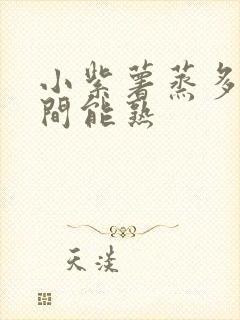 小紫薯蒸多
間能熟
天淡